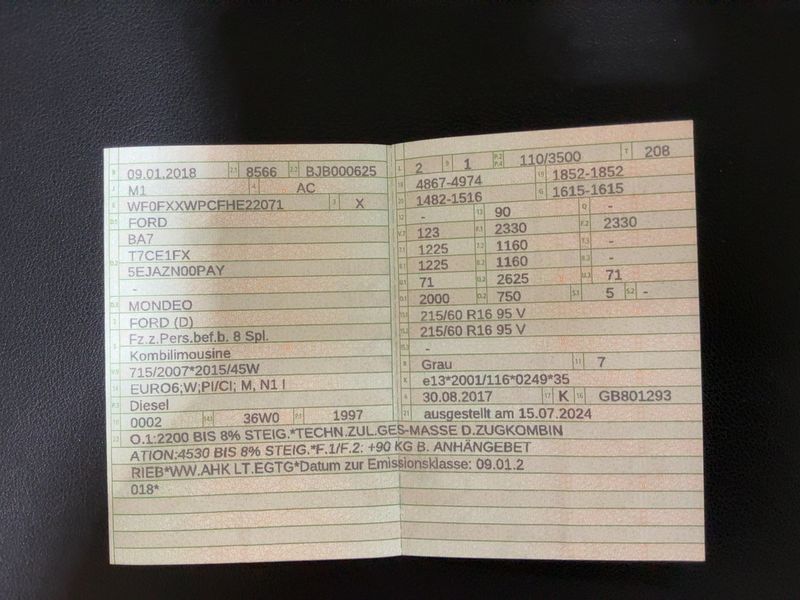 09.01.2018 2.1 8566 2.2 BJB000625
M1 AC
WF0FXXWPCFHE22071 X
FORD
BA7
T7CE1FX
5EJAZN00PAY
-
MONDEO
FORD (D)
Fz.z.Pers.bef.b. 8 Spl.
Kombilimousine
715/2007*2015/45W
EURO6;W;PI/CI; M, N1 I
Diesel
0002 36W0 1997
2 1 110/3500 T 208
4867-4974 1852-1852
1482-1516 G 1615-1615
- 90 Q -
123 2330 2330
1225 1160 -
1225 1160 -
71 2625 71
2000 750 5 -
215/60 R16 95 V
215/60 R16 95 V
-
Grau 11 7
K e13*2001/116*0249*35
30.08.2017 K GB801293
21 ausgestellt am 15.07.2024
22 O.1:2200 BIS 8% STEIG.*TECHN.ZUL.GES-MASSE D.ZUGKOMBIN
ATION:4530 BIS 8% STEIG.*F.1/F.2: +90 KG B. ANHÄNGEBET
RIEB*WW.AHK LT.EGTG*Datum zur Emissionsklasse: 09.01.2
018*